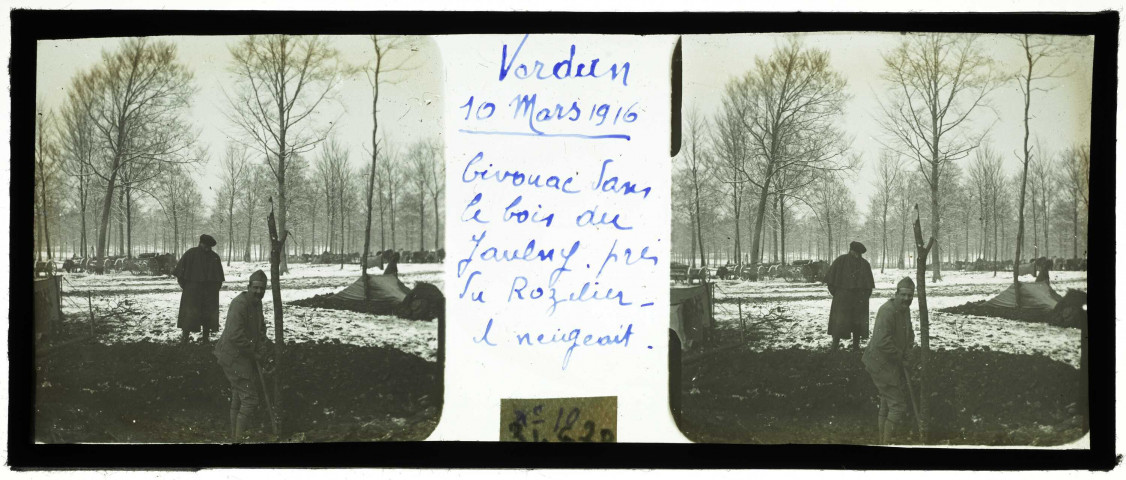 Verdun
10 Mars 1916
bivouac dans
le bois du
Jaulny. près
du Rozelier -
il neigeait.